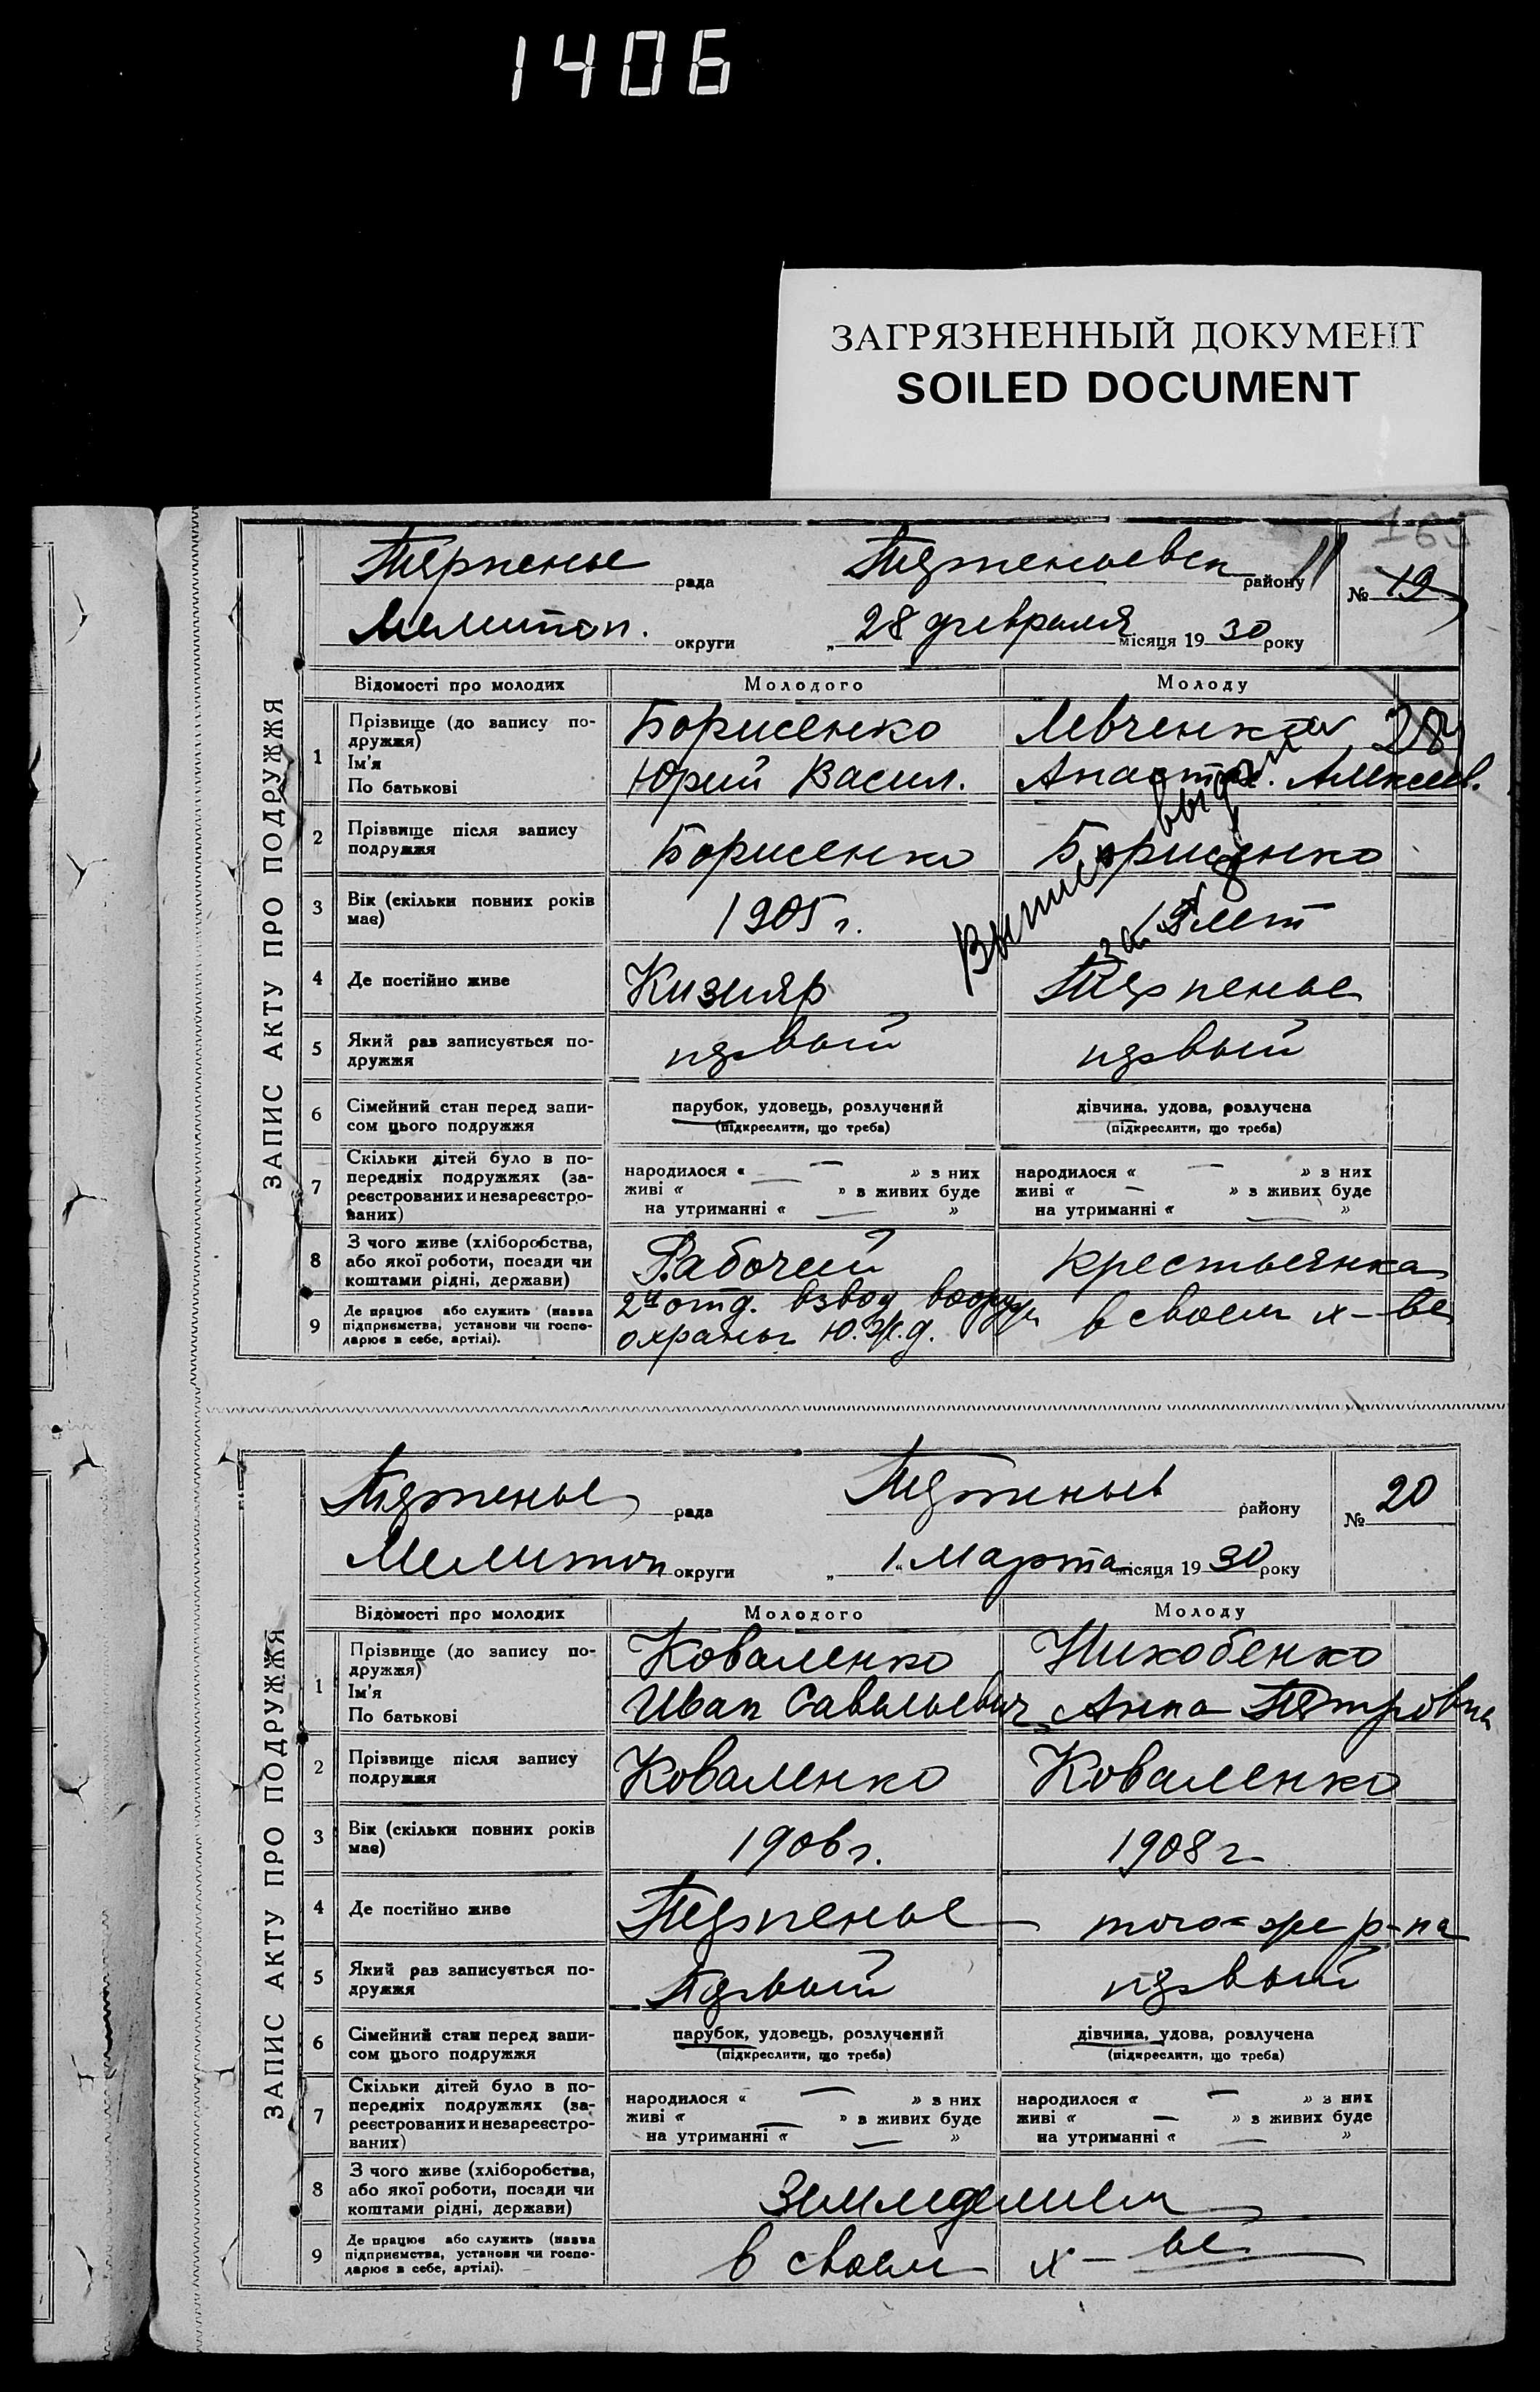 1406
ЗАГРЯЗНЕННЫЙ ДОКУМЕНТ
SOILED DOCUMENT
165
ЗАПИС АКТУ ПРО ПОДРУЖЖЯ
Терпенье рада Терпеньевск району № 19
Мелитоп. округи „ 28 февраля місяця 19 30 року
Відомості про молодих Молодого Молоду
1 Прізвище (до запису по-
дружжя) Борисенко Левченкова 28
Ім'я
По батькові Юрий Васил. Анастас. Алексеев.
2 Прізвище після запису
подружжя Борисенко Борисенко
3 Вік (скільки повних років
має) 1905 г. лет
Выпись выдана
за № 8
4 Де постійно живе Кизияр Терпенье
5 Який раз записується по-
дружжя первый первый
6 Сімейний стан перед запи-
сом цього подружжя
парубок, удовець, розлучений дівчина, удова, розлучена
(підкреслити, що треба) (підкреслити, що треба)
7 Скільки дітей було в по-
передніх подружжях (за-
реєстрованих и незареєстро-
ваних)
народилося « — » з них народилося « — » з них
живі « » з живих буде живі « — » з живих буде
на утриманні « — » на утриманні « — »
8 З чого живе (хліборобства,
або якої роботи, посади чи
коштами рідні, держави) Рабочий крестьянка
9 Де працює або служить (назва
підприємства, установи чи госпо-
дарює в себе, артілі).
2й отд. взвод вооруж
охраны Ю.Ж.д. в своем х-ве
ЗАПИС АКТУ ПРО ПОДРУЖЖЯ
Терпенье рада Терпеньев району № 20
Мелитоп округи „ 1 Марта місяця 19 30 року
Відомості про молодих Молодого Молоду
1 Прізвище (до запису по-
дружжя) Коваленко
Ім'я
По батькові Иван Савельевич Анна Петровна
2 Прізвище після запису
подружжя Коваленко Коваленко
3 Вік (скільки повних років
має) 1906 г. 1908 г
4 Де постійно живе Терпенье того-же р-на
5 Який раз записується по-
дружжя Первый первый
6 Сімейний стан перед запи-
сом цього подружжя
парубок, удовець, розлучений дівчина, удова, розлучена
(підкреслити, що треба) (підкреслити, що треба)
7 Скільки дітей було в по-
передніх подружжях (за-
реєстрованих и незареєстро-
ваних)
народилося « — » з них народилося « — » з них
живі « — » з живих буде живі « — » з живих буде
на утриманні « — » на утриманні « — »
8 З чого живе (хліборобства,
або якої роботи, посади чи
коштами рідні, держави) Земледелием
9 Де працює або служить (назва
підприємства, установи чи госпо-
дарює в себе, артілі). в своем х-ве